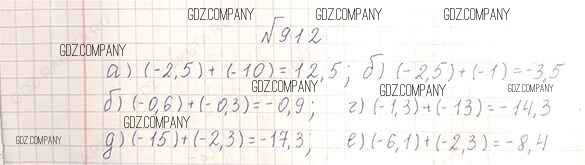 GDZ.COMPANY GDZ.COMPANY GDZ.COMPANY
№912
GDZ.COMPANY
а) (-2,5)+(-10)=12,5; б) (-2,5)+(-1)=-3,5
GDZ.COMPANY GDZ.COMPANY
б) (-0,6)+(-0,3)=-0,9; г) (-1,3)+(-13)=-14,3
GDZ.COMPANY
GDZ.COMPANY д) (-15)+(-2,3)=-17,3; е) (-6,1)+(-2,3)=-8,4 GDZ.COMPANY